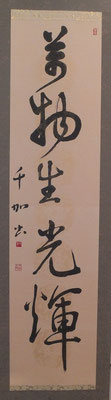 萬物生光輝
千加書